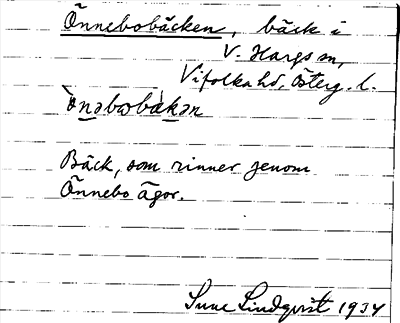 Önnebobäcken, bäck i
V. Hargs sn,
Vifolka hd, Österg. l.
Bäck, som rinner genom
Önnebo ägor.
Sune Lindqvist 1934